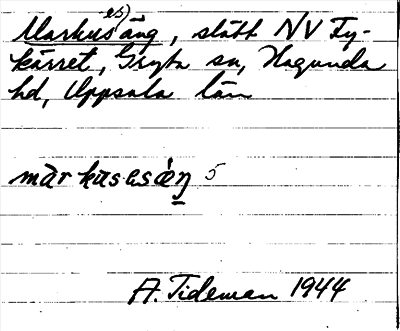 Markus(es)äng, slått NV Ty-
kärret, Gryta sn, Hagunda
hd, Uppsala län
märkuseséŋ 5
A. Tideman 1944